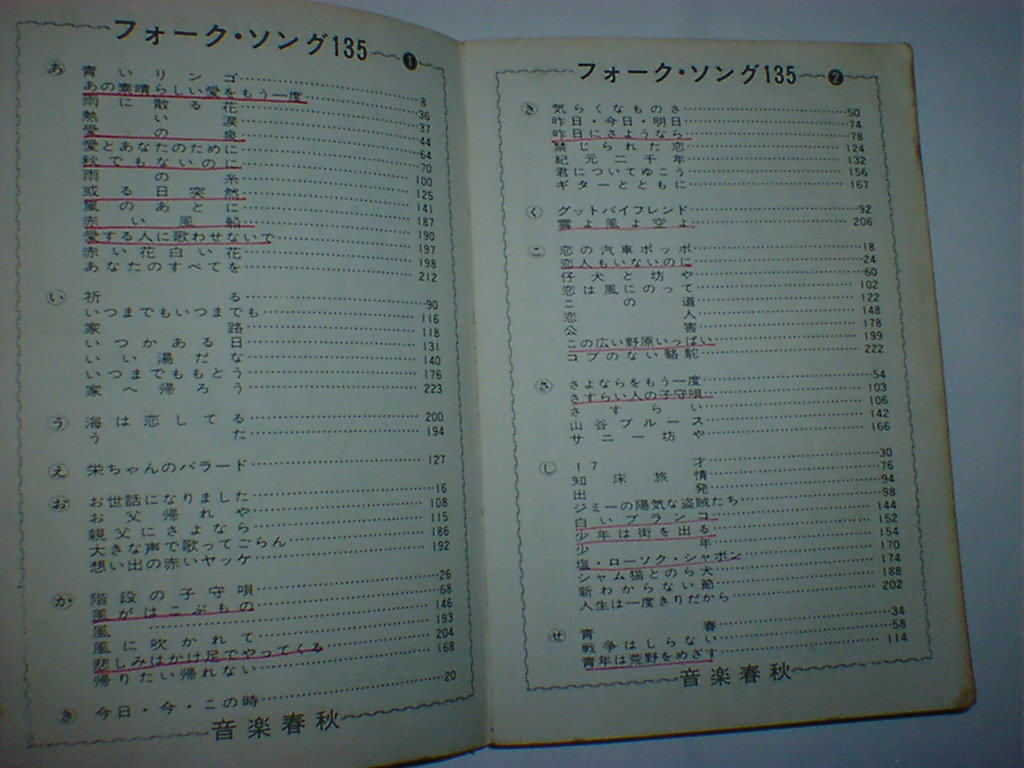 フォーク・ソング135 1
あ 青いリンゴ 8
あの素晴らしい愛をもう一度 36
雨に散る花 37
熱い涙 44
愛の泉 64
愛とあなたのために 70
秋でもないのに 100
雨の糸 125
或る日突然 141
嵐のあとに 187
赤い風船 190
愛する人に歌わせないで 197
赤い花白い花 198
あなたのすべてを 212
い 祈る 90
いつまでもいつまでも 116
家路 118
いつかある日 131
いい湯だな 140
いつまでももとう 176
家へ帰ろう 223
う 海は恋してる 200
うた 194
え 栄ちゃんのバラード 127
お お世話になりました 16
お父帰れや 108
親父にさよなら 115
大きな声で歌ってごらん 186
想い出の赤いヤッケ 192
か 階段の子守唄 26
風がはこぶもの 68
風 146
風に吹かれて 193
悲しみはかけ足でやってくる 204
帰りたい帰れない 168
き 今日・今・この時 20
音楽春秋
フォーク・ソング135 2
き 気らくなものさ 50
昨日・今日・明日 74
昨日にさようなら 78
禁じられた恋 124
紀元二千年 132
君についてゆこう 156
ギターとともに 167
く グットバイフレンド 92
雲よ風よ空よ 206
こ 恋の汽車ポッポ 18
恋人もいないのに 24
仔犬と坊や 60
恋は風にのって 102
この道 122
恋人 148
公害 178
この広い野原いっぱい 199
コブのない駱駝 222
さ さよならをもう一度 54
さすらい人の子守唄 103
さすらい 106
山谷ブルース 142
サニー坊や 166
し 17才 30
知床旅情 76
出発 94
ジミーの陽気な盗賊たち 98
白いブランコ 144
少年は街を出る 152
少年 154
塩・ローソク・シャボン 170
シャム猫とのら犬 174
新わからない節 188
人生は一度きりだから 202
せ 青春 34
戦争はしらない 58
青年は荒野をめざす 114
音楽春秋